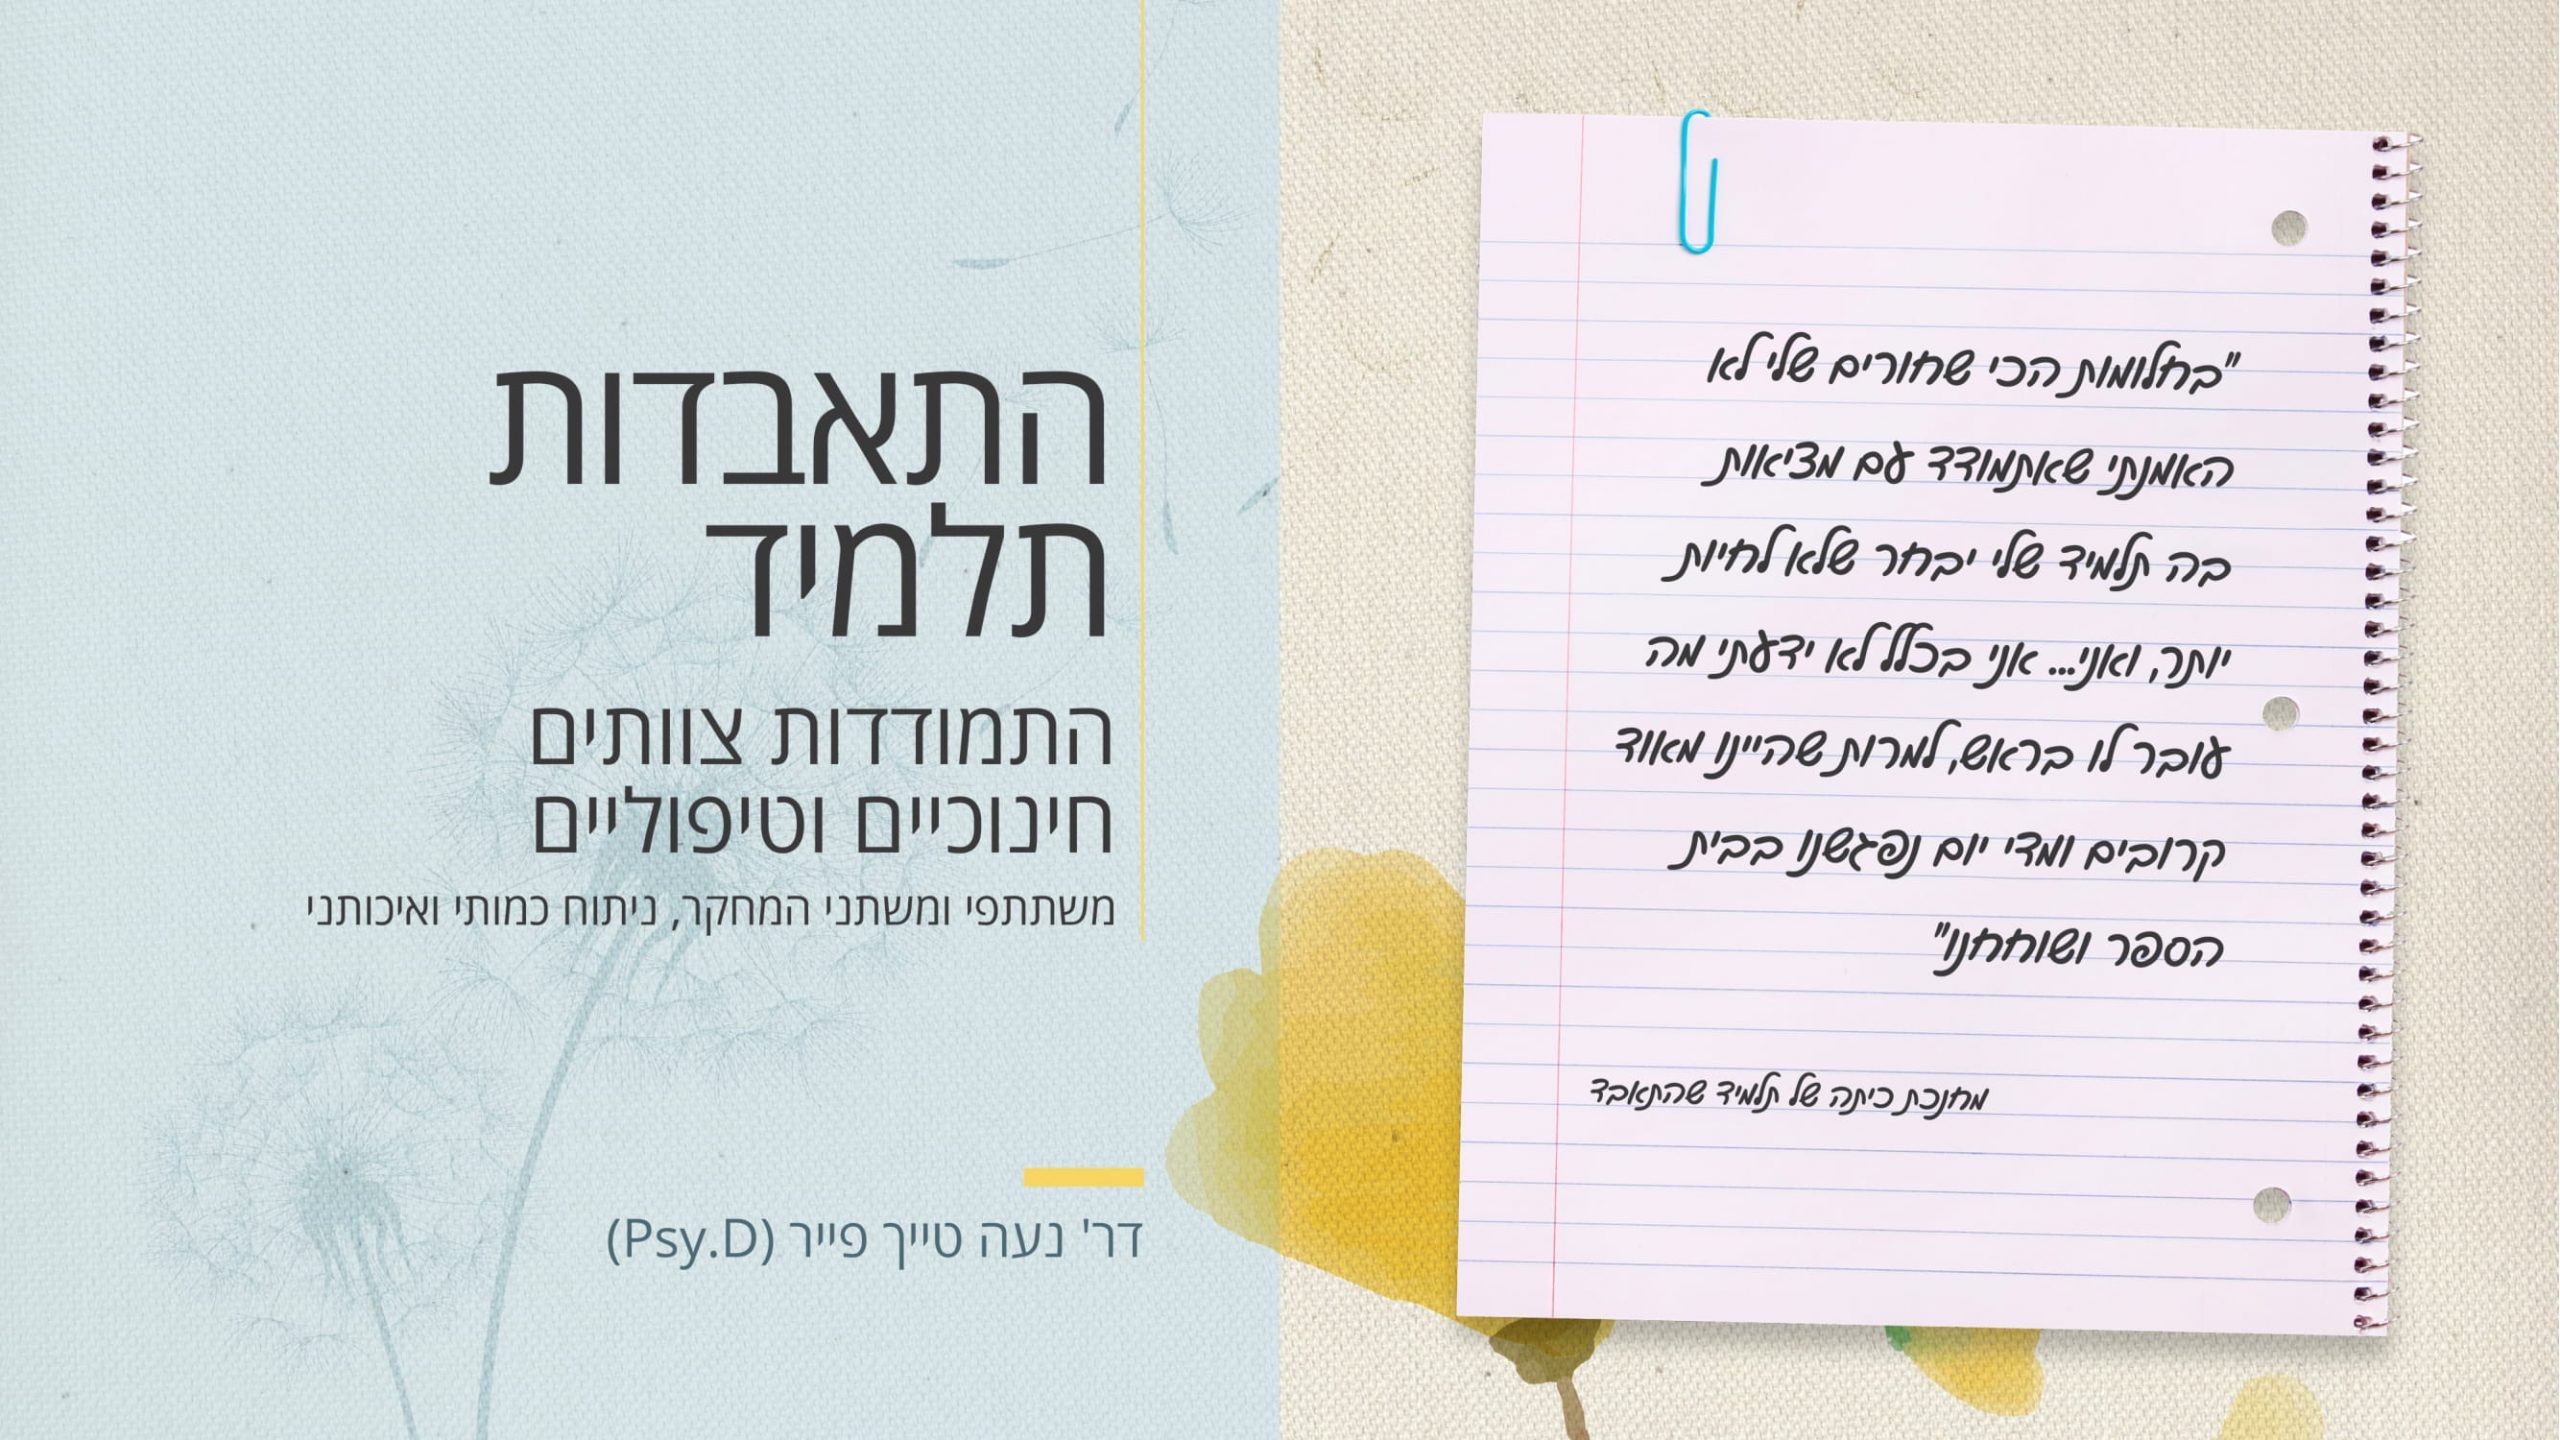 התאבדות
תלמיד
התמודדות צוותים
חינוכיים וטיפוליים
משתתפי ומשתני המחקר, ניתוח כמותי ואיכותני
דר' נעה טייך פייר (Psy.D)
"בחלומות הכי שחורים שלי לא
האמנתי שאתמודד עם מציאות
בה תלמיד שלי יבחר שלא לחיות
יותר, ואני... אני בכלל לא ידעתי מה
עובר לו בראש, למרות שהיינו מאוד
קרובים ומדי יום נפגשנו בבית
הספר ושוחחנו"
מחנכת כיתה של תלמיד שהתאבד